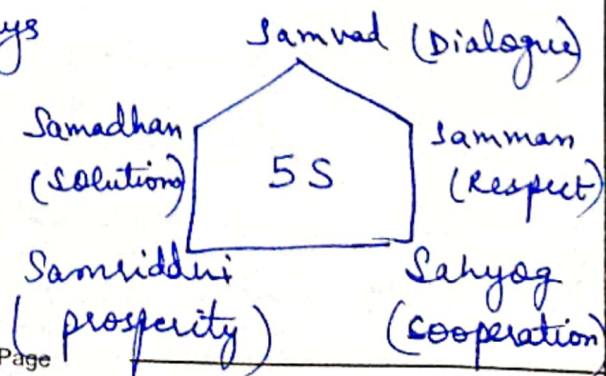 ys
Samvad (Dialogue)
Samadhan
(Solution)
Samman
(Respect)
5S
Samriddhi
(prosperity)
Sahyog
(cooperation)
Page